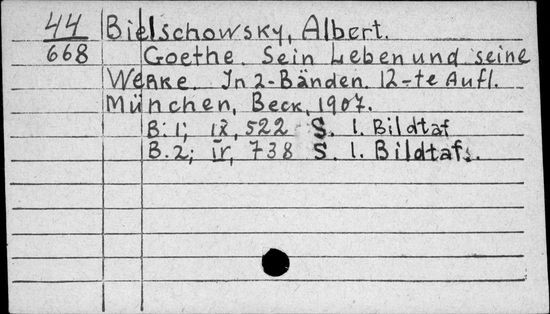 44 Bielschowsky, Albert.
668 Goethe. Sein Leben und seine
Werke. In 2-Bänden. 12-te Aufl.
München, Beck, 1907.
B. 1; IX, 522 S. 1. Bildtaf
B. 2; IV, 738 S. 1. Bildtaf.